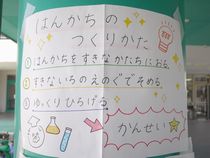 はんかちの
つくりかた
①はんかちをすきなかたちにおる。
②すきないろのえのぐでそめる。
③ゆっくりひらげる。
かんせい